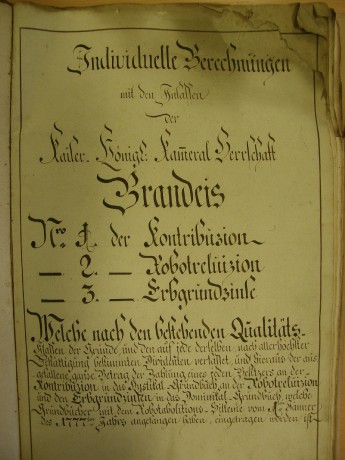 Individuelle Berechnungen
mit den Insassen
der
Kaiser. Königl. Kameral Herrschaft
Brandeis
Nro. 1. der Kontribuzion
— 2. — Robotreluizion
— 3. — Erbgrundzinse
Welche nach den bestehenden Qualitäts-
Klassen der Gründe, und den auf jede derselben, nach allerhöchster
bestimmten Dividenten verfasset, und hieraus der aus-
gefallene ganze Betrag der Zahlung eines jeden Besitzers an der
Kontribuzion in das Rustikal-Grundbuch, an der Robotreluizion
und den Erbgrundzinsen in das Dominikal-Grundbuch, welche
Grundbücher mit dem Robotabolitions-Sisteme vom 1ten Janner
des 1777ten Jahrs angefangen haben, eingetragen worden ist